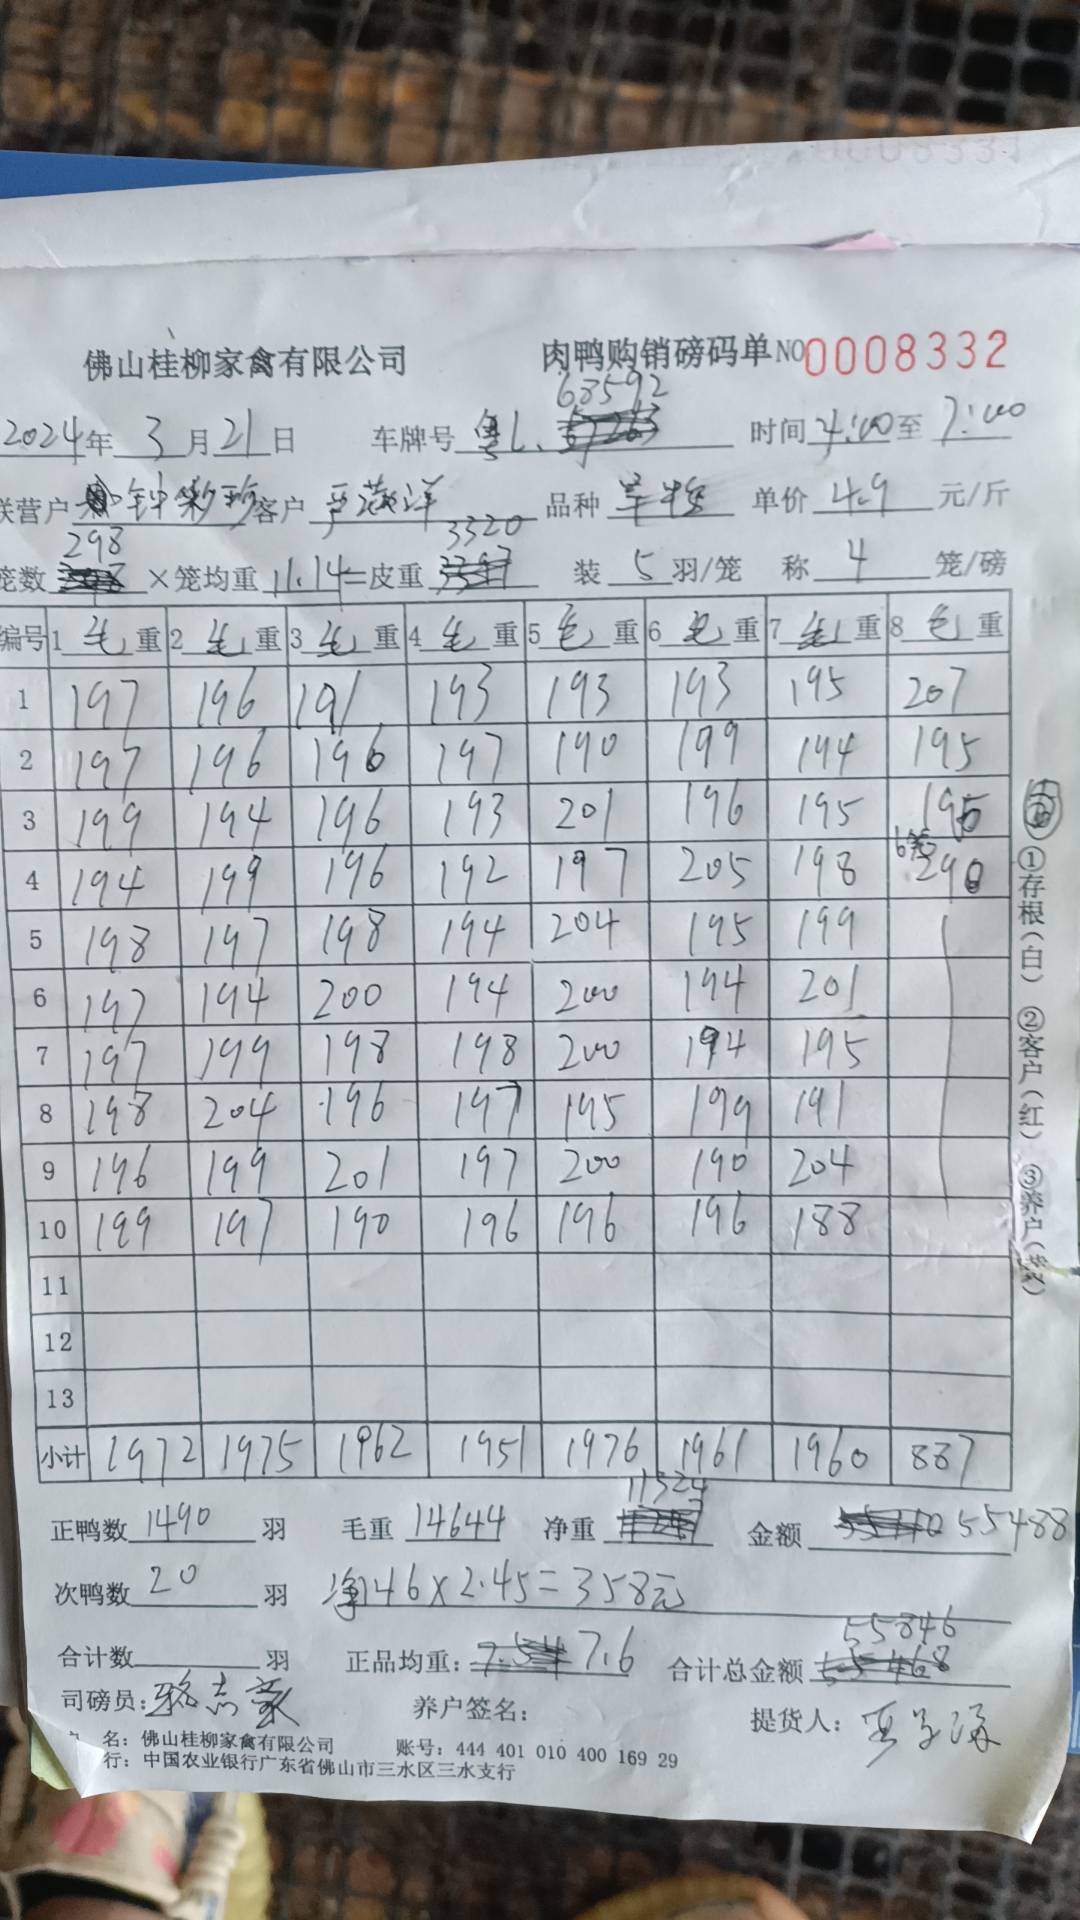 佛山桂柳家禽有限公司 肉鸭购销磅码单 NO 0008332
68592
2024年 3月21日 车牌号 粤L. 时间 4:00至 7:00
联营户 钟彩珍 客户 严 洋 品种 单价 4.9 元/斤
298 3320
笼数 ×笼均重 11.14=皮重 装 5 羽/笼 称 4 笼/磅
编号 1 毛 重 2 毛 重 3 毛 重 4 毛 重 5 毛 重 6 毛 重 7 毛 重 8 毛 重
1 197 196 191 193 193 193 195 207
2 197 196 196 197 190 199 194 195
3 199 194 196 193 201 196 195 195
4 194 199 196 192 197 205 198 6笼 290
5 198 197 198 194 204 195 199
6 197 194 200 194 200 194 201
7 197 199 198 198 200 194 195
8 198 204 196 197 195 199 191
9 196 199 201 197 200 190 204
10 199 197 190 196 196 196 188
11
12
13
小计 1972 1975 1962 1951 1976 1961 1960 887
11324
正鸭数 1490 羽 毛重 14644 净重 金额 55488
次鸭数 20 羽 净146×2.45=358元
55846
合计数 羽 正品均重: 7.6 合计总金额
司磅员: 骆志豪 养户签名: 提货人:
名: 佛山桂柳家禽有限公司 账号: 444 401 010 400 169 29
行: 中国农业银行广东省佛山市三水区三水支行
①存根(白) ②客户(红) ③养户(黄)